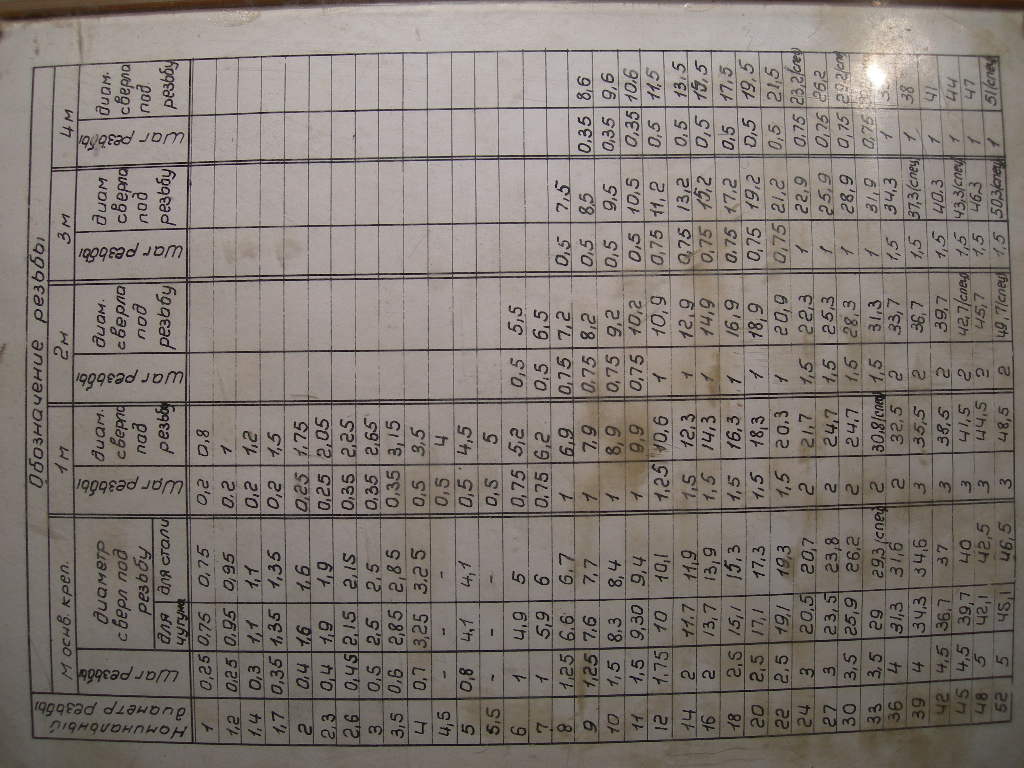 Обозначение резьбы
Номинальный диаметр резьбы
М оснв. креп. 1м 2м 3м 4м
Шаг резьбы
диаметр сверл под резьбу
для чугуна для стали
Шаг резьбы диам. сверла под резьбу
Шаг резьбы диам. сверла под резьбу
Шаг резьбы диам сверла под резьбу
Шаг резьбы диам. сверла под резьбу
1 0,25 0,75 0,75 0,2 0,8
1,2 0,25 0,95 0,95 0,2 1
1,4 0,3 1,1 1,1 0,2 1,2
1,7 0,35 1,35 1,35 0,2 1,5
2 0,4 1,6 1,6 0,25 1,75
2,3 0,4 1,9 1,9 0,25 2,05
2,6 0,45 2,15 2,15 0,35 2,25
3 0,5 2,5 2,5 0,35 2,65
3,5 0,6 2,85 2,85 0,35 3,15
4 0,7 3,25 3,25 0,5 3,5
4,5 - - - 0,5 4
5 0,8 4,1 4,1 0,5 4,5
5,5 - - - 0,5 5
6 1 4,9 5 0,75 5,2 0,5 5,5
7 1 5,9 6 0,75 6,2 0,5 6,5
8 1,25 6,6 6,7 1 6,9 0,75 7,2 0,5 7,5
9 1,25 7,6 7,7 1 7,9 0,75 8,2 0,5 8,5 0,35 8,6
10 1,5 8,3 8,4 1 8,9 0,75 9,2 0,5 9,5 0,35 9,6
11 1,5 9,30 9,4 1 9,9 0,75 10,2 0,5 10,5 0,35 10,6
12 1,75 10 10,1 1,25 10,6 1 10,9 0,75 11,2 0,5 11,5
14 2 11,7 11,9 1,5 12,3 1 12,9 0,75 13,2 0,5 13,5
16 2 13,7 13,9 1,5 14,3 1 14,9 0,75 15,2 0,5 15,5
18 2,5 15,1 15,3 1,5 16,3 1 16,9 0,75 17,2 0,5 17,5
20 2,5 17,1 17,3 1,5 18,3 1 18,9 0,75 19,2 0,5 19,5
22 2,5 19,1 19,3 1,5 20,3 1 20,9 0,75 21,2 0,5 21,5
24 3 20,5 20,7 2 21,7 1,5 22,3 1 22,9 0,75 23,2/спец
27 3 23,5 23,8 2 24,7 1,5 25,3 1 25,9 0,75 26,2
30 3,5 25,9 26,2 2 24,7 1,5 28,3 1 28,9 0,75 29,2/сп
33 3,5 29 29,3/спец 2 30,8/спец 1,5 31,3 1 31,9 0,75
36 4 31,3 31,6 2 32,5 2 33,7 1,5 34,3 1
39 4 34,3 34,6 3 35,5 2 36,7 1,5 37,3/спец 1 38
42 4,5 36,7 37 3 38,5 2 39,7 1,5 40,3 1 41
45 4,5 39,7 40 3 41,5 2 42,7/спец 1,5 43,3/спец 1 44
48 5 42,1 42,5 3 44,5 2 45,7 1,5 46,3 1 47
52 5 46,5 3 48,5 2 49,7/спец 1,5 50,3/спец 1 51/спец